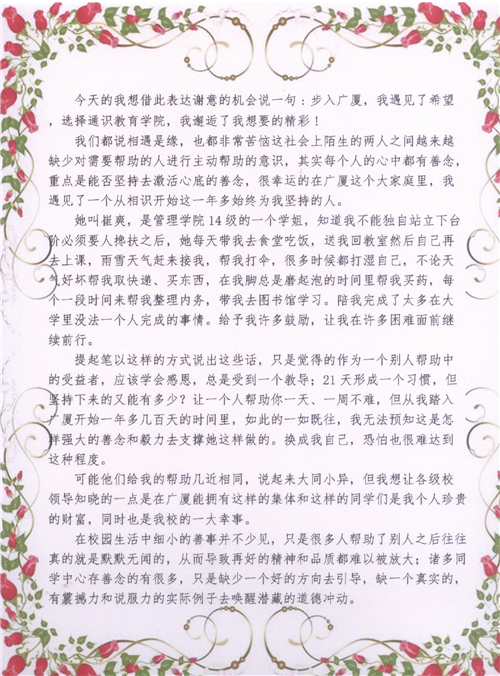 今天的我想借此表达谢意的机会说一句：步入广厦，我遇见了希望
，选择通识教育学院，我邂逅了我想要的精彩！
我们都说相遇是缘，也都非常苦恼这社会上陌生的两人之间越来越
缺少对需要帮助的人进行主动帮助的意识，其实每个人的心中都有善念，
重点是能否坚持去激活心底的善念，很幸运的在广厦这个大家庭里，我
遇见了一个从相识开始这一年多始终为我坚持的人。
她叫崔爽，是管理学院14级的一个学姐，知道我不能独自站立下台
阶必须要人搀扶之后，她每天带我去食堂吃饭，送我回教室然后自己再
去上课，雨雪天气赶来接我，帮我打伞，很多时候都打湿自己，不论天
气好坏帮我取快递、买东西，在我脚总是磨起泡的时间里帮我买药，每
个一段时间来帮我整理内务，带我去图书馆学习。陪我完成了太多在大
学里没法一个人完成的事情。给予我许多鼓励，让我在许多困难面前继
续前行。
提起笔以这样的方式说出这些话，只是觉得的作为一个别人帮助中
的受益者，应该学会感恩，总是受到一个教导；21天形成一个习惯，但
坚持下来的又能有多少？让一个人帮助你一天、一周不难，但从我踏入
广厦开始一年多几百天的时间里，如此的一如既往，我无法预知这是怎
样强大的善念和毅力去支撑她这样做的。换成我自己，恐怕也很难达到
这种程度。
可能他们给我的帮助几近相同，说起来大同小异，但我想让各级校
领导知晓的一点是在广厦能拥有这样的集体和这样的同学们是我个人珍贵
的财富，同时也是我校的一大幸事。
在校园生活中细小的善事并不少见，只是很多人帮助了别人之后往往
真的就是默默无闻的，从而导致再好的精神和品质都难以被放大；诸多同
学中心存善念的有很多，只是缺少一个好的方向去引导，缺一个真实的，
有震撼力和说服力的实际例子去唤醒潜藏的道德冲动。